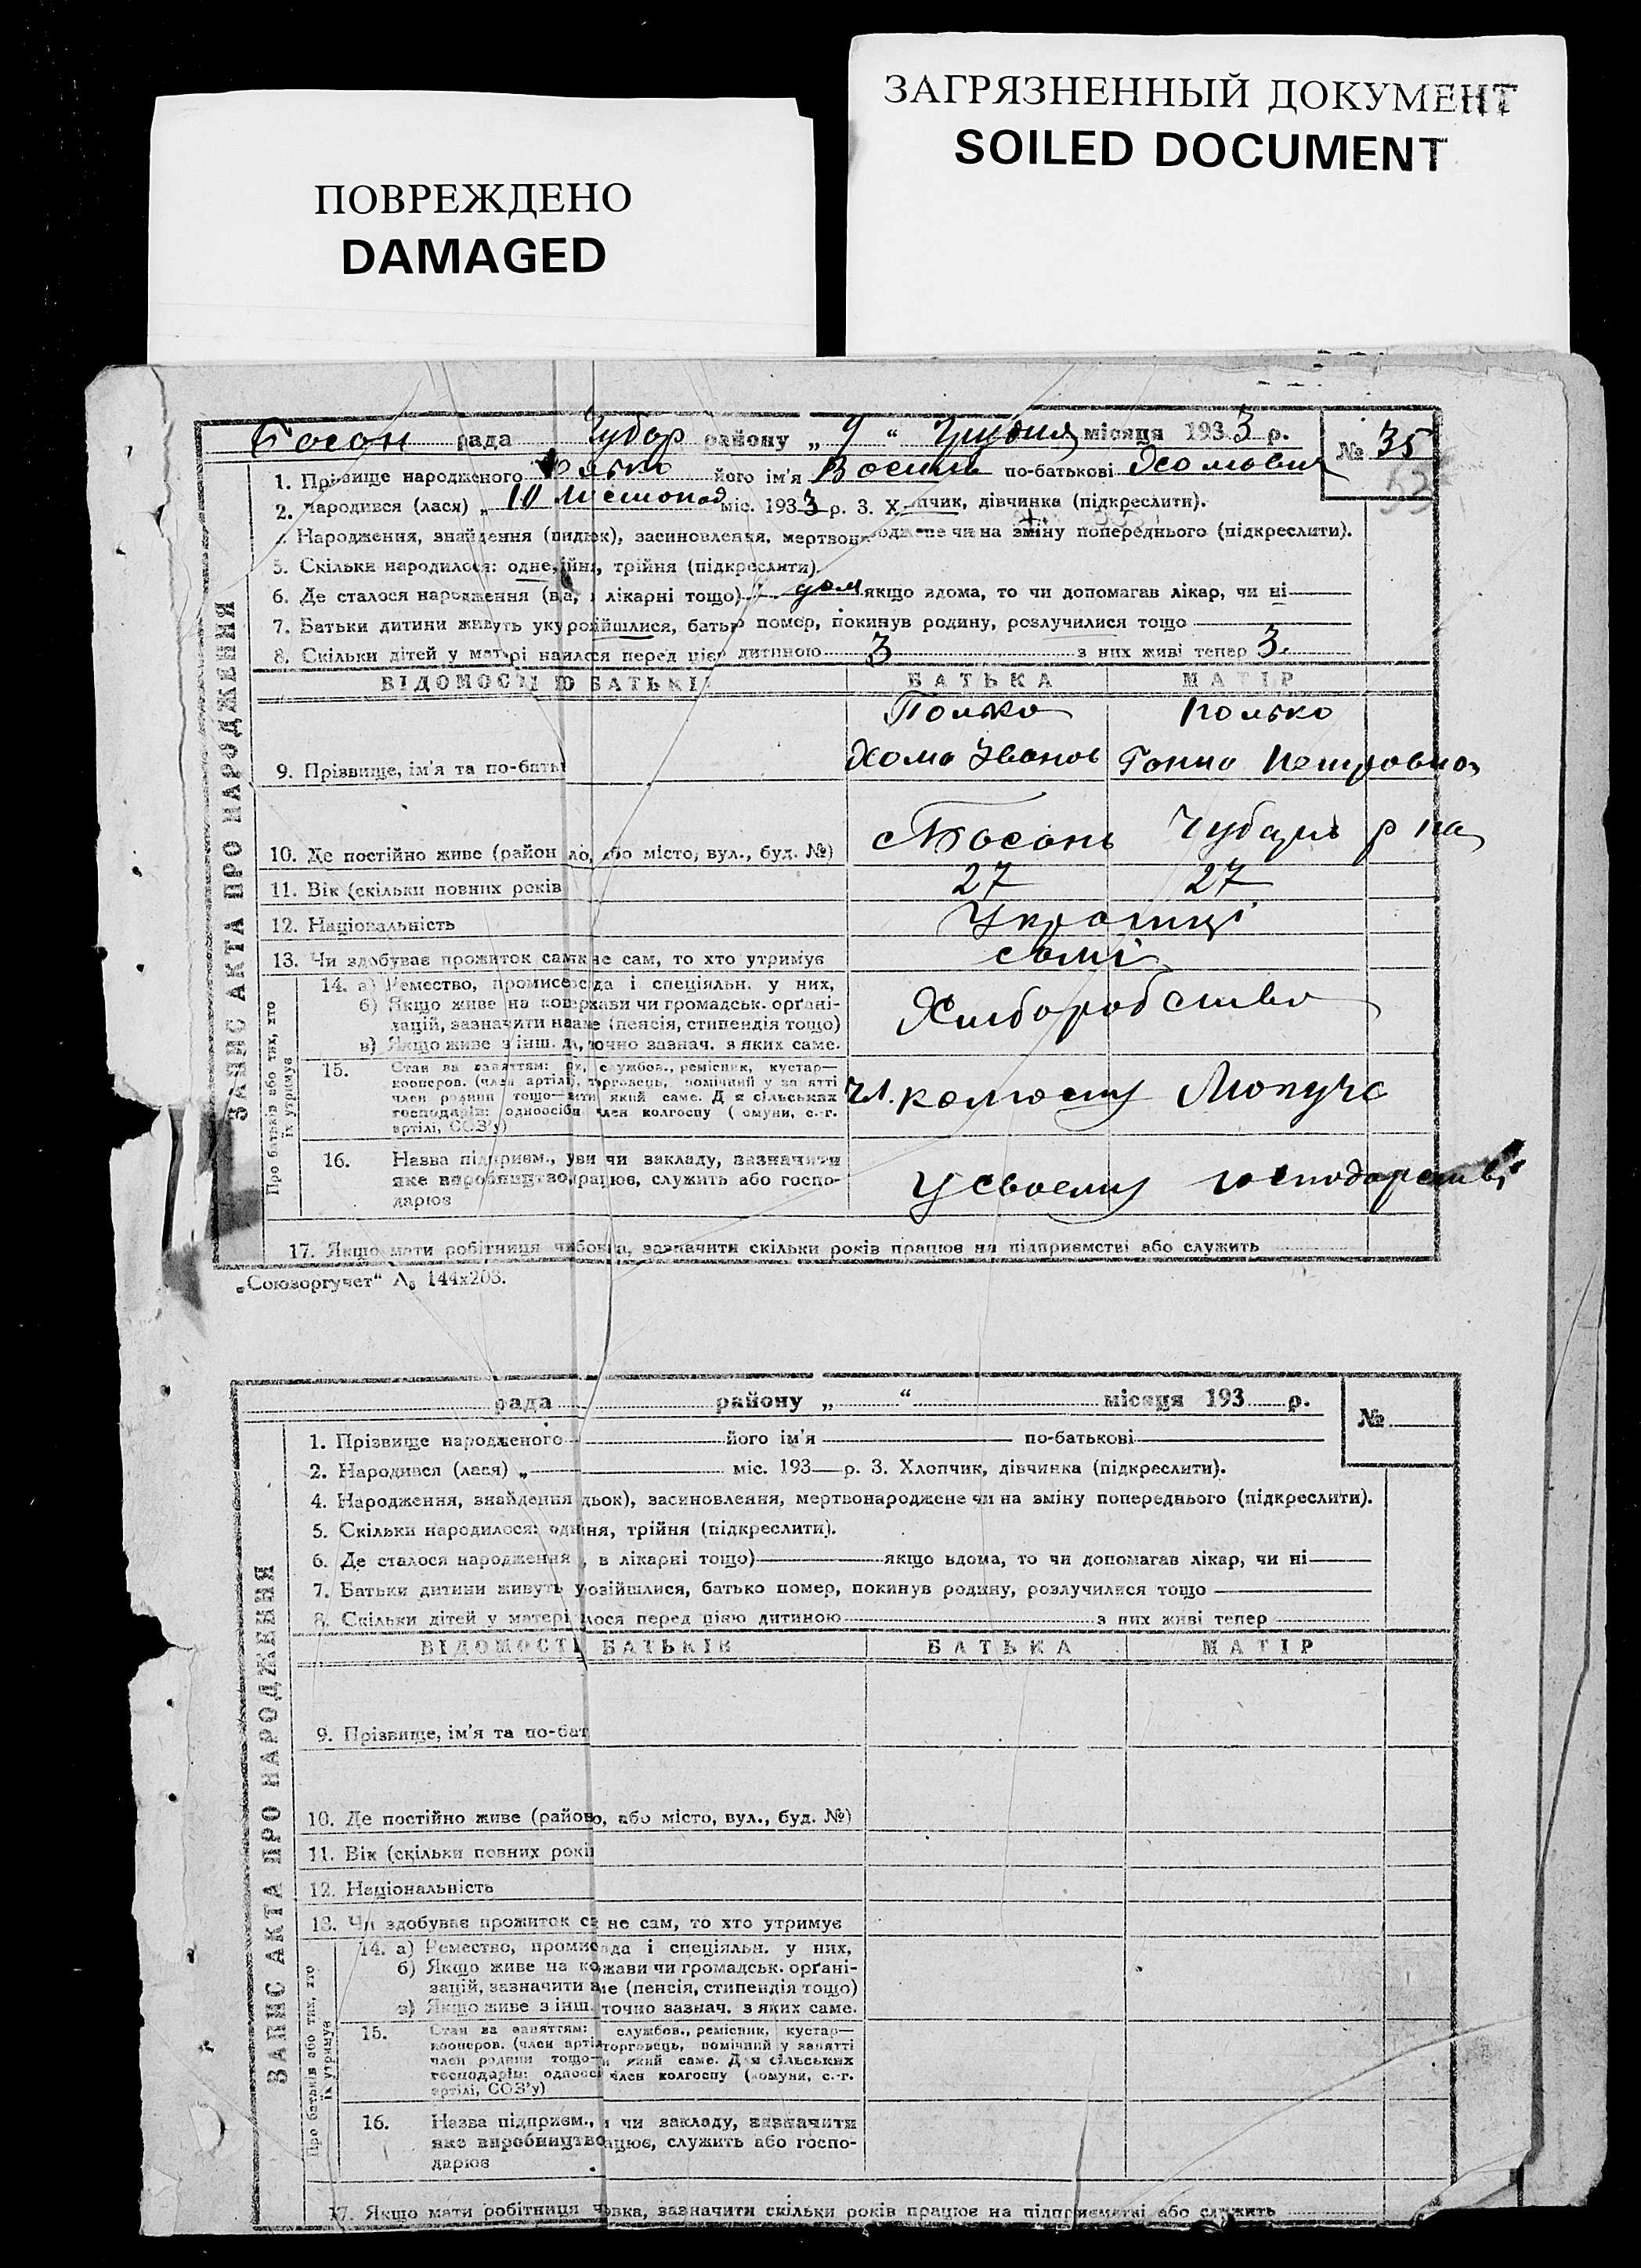 ЗАГРЯЗНЕННЫЙ ДОКУМЕНТ
SOILED DOCUMENT
ПОВРЕЖДЕНО
DAMAGED
Босан рада Чубар району „ 9 “ Грудня місяця 1933 р.
№ 35
53
1. Прізвище народженого його ім'я Восиль по-батькові Хомович
2. Народився (лася) „ 10 листопад міс. 1933 р. 3. Х пчик, дівчинка (підкреслити).
Народження, знайдення (пидюк), засиновлення, мертвон оджене чи на зміну попереднього (підкреслити).
5. Скільки народилося: одне, йні, трійня (підкреслити)
6. Де сталося народження (в а, лікарні тощо) дом якщо вдома, то чи допомагав лікар, чи ні
7. Батьки дитини живуть уку розійшлися, батьк помер, покинув родину, розлучилися тощо
8. Скільки дітей у матері на илося перед цією дитиною 3 з них живі тепер 3.
ВІДОМОСТІ О БАТЬКІ БАТЬКА МАТІР
Полько Полько
9. Прізвище, ім'я та по-бать Хома Іванов Ганна Петровна
10. Де постійно живе (район ло, або місто, вул., буд. №) с Босань Чубарь р на
11. Вік (скільки повних років 27 27
12. Національність Українці
13. Чи здобуває прожиток сам не сам, то хто утримує самі
14. а) Ремество, промисе да і спеціяльн. у них,
б) Якщо живе на ко жави чи громадськ. орґані-
зацій, зазначити на аме (пенсія, стипендія тощо)
в) Якщо живе з інш. д , точно зазнач. з яких саме.
Хліборобство
15. Стан за заняттям: службов., ремісник, кустар—
кооперов. (член артілі), торговець, помічний у за ятті
член родини тощо— ити який саме. Д я сільських
господарів: одноосібн член колгоспу ( омуни, с.-г.
артілі, СОЗ'у)
чл. колгоспу
16. Назва підприєм., у чи закладу, зазначити
яке виробництво, працює, служить або госпо-
дарює
У своєму господарстві
17. Якщо мати робітниця чи бовка, зазначити скільки років працює на підприємстві або служить
ЗАПИС АКТА ПРО НАРОДЖЕННЯ
Про батьків або тих, хто їх утримує
„Союзоргучет“ 144х203.
рада району „ “ місяця 193 р.
№
1. Прізвище народженого його ім'я по-батькові
2. Народився (лася) „ міс. 193 р. 3. Хлопчик, дівчинка (підкреслити).
4. Народження, знайдення дьок), засиновлення, мертвонароджене чи на зміну попереднього (підкреслити).
5. Скільки народилося: одн йня, трійня (підкреслити).
6. Де сталося народження , в лікарні тощо) якщо вдома, то чи допомагав лікар, чи ні
7. Батьки дитини живуть у озійшлися, батько помер, покинув родину, розлучилися тощо
8. Скільки дітей у матері лося перед цією дитиною з них живі тепер
ВІДОМОСТІ БАТЬКІВ БАТЬКА МАТІР
9. Прізвище, ім'я та по-бат
10. Де постійно живе (район о, або місто, вул., буд. №)
11. Вік (скільки повних рокі
12. Національність
13. Чи здобуває прожиток са не сам, то хто утримує
14. а) Ремество, промис да і спеціяльн. у них,
б) Якщо живе на ко жави чи громадськ. орґані-
зацій, зазначити ме (пенсія, стипендія тощо)
в) Якщо живе з інш. точно зазнач. з яких саме.
15. Стан за заняттям: службов., ремісник, кустар—
кооперов. (член артіл торговець, помічний у занятті
член родини тощо— и який саме. Д я сільських
господарів: одноосі член колгоспу (комуни, с.-г.
артілі, СОЗ'у)
16. Назва підприєм., чи закладу, зазначити
яке виробництво ацює, служить або госпо-
дарює
17. Якщо мати робітниця ч вка, зазначити скільки років працює на підприємстві або служить
ЗАПИС АКТА ПРО НАРОДЖЕННЯ
Про батьків або тих, хто їх утримує